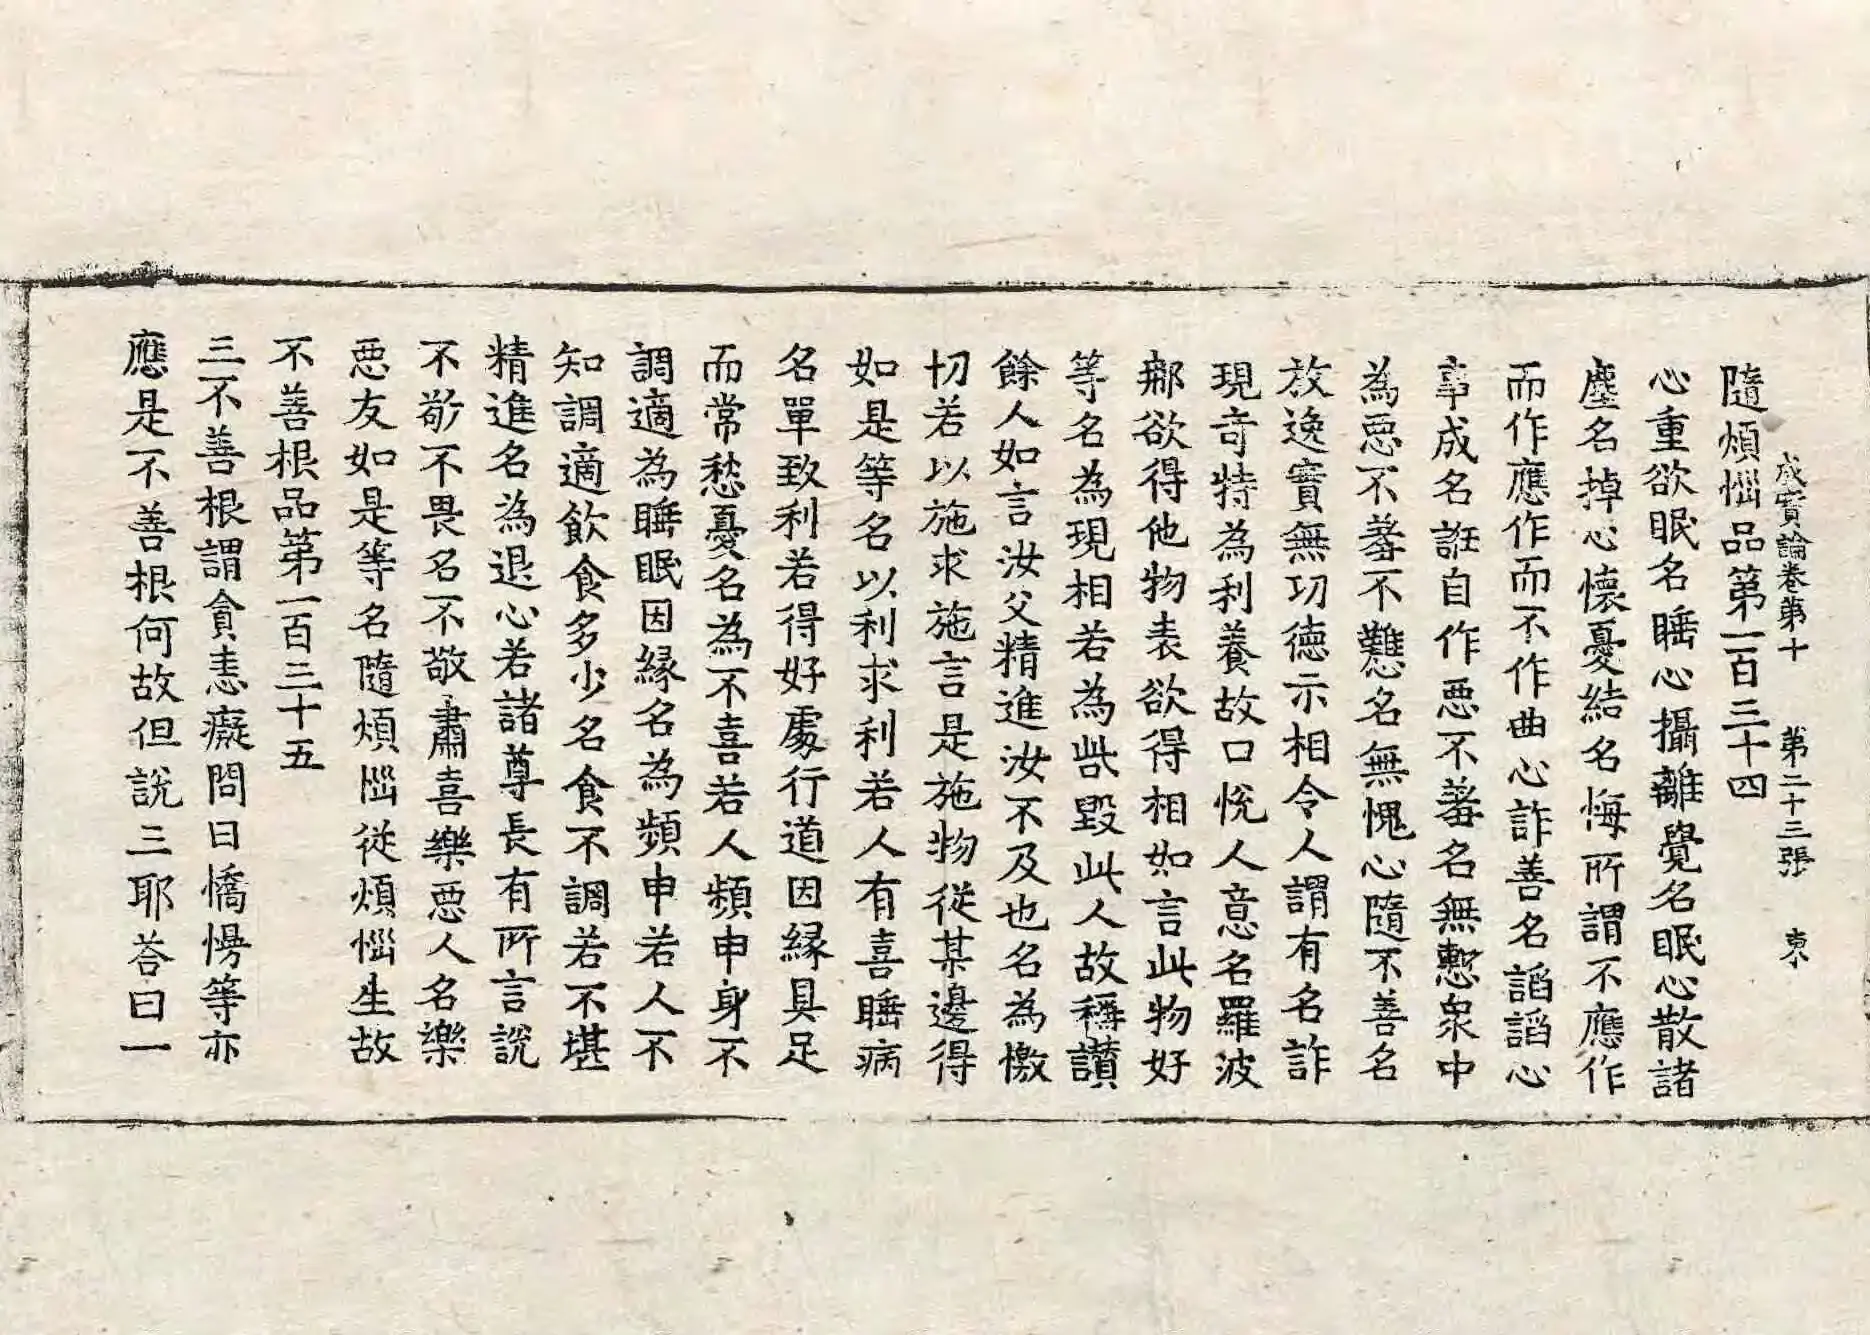 成實論卷第十　第二十三張　東
隨煩惱品第一百三十四
心重欲眠名睡心攝離覺名眠心散諸
塵名掉心懷憂結名悔所謂不應作
而作應作而不作曲心詐善名諂諂心
事成名誑自作惡不羞名無慙衆中
為惡不羞不難名無愧心隨不善名
放逸實無功德示相令人謂有名詐
現奇特為利養故口悅人意名羅波
那欲得他物表欲得相如言此物好
等名為現相若為呰毀此人故稱讃
餘人如言汝父精進汝不及也名為憿
切若以施求施言是施物從某邊得
如是等名以利求利若人有喜睡病
名單致利若得好處行道因緣具足
而常愁憂名為不喜若人頻申身不
調適為睡眠因緣名為頻申若人不
知調適飲食多少名食不調若不堪
精進名為退心若諸尊長有所言說
不敬不畏名不敬肅喜樂惡人名樂
惡友如是等名隨煩惱從煩惱生故
不善根品第一百三十五
三不善根謂貪恚癡問曰憍慢等亦
應是不善根何故但說三耶荅曰一